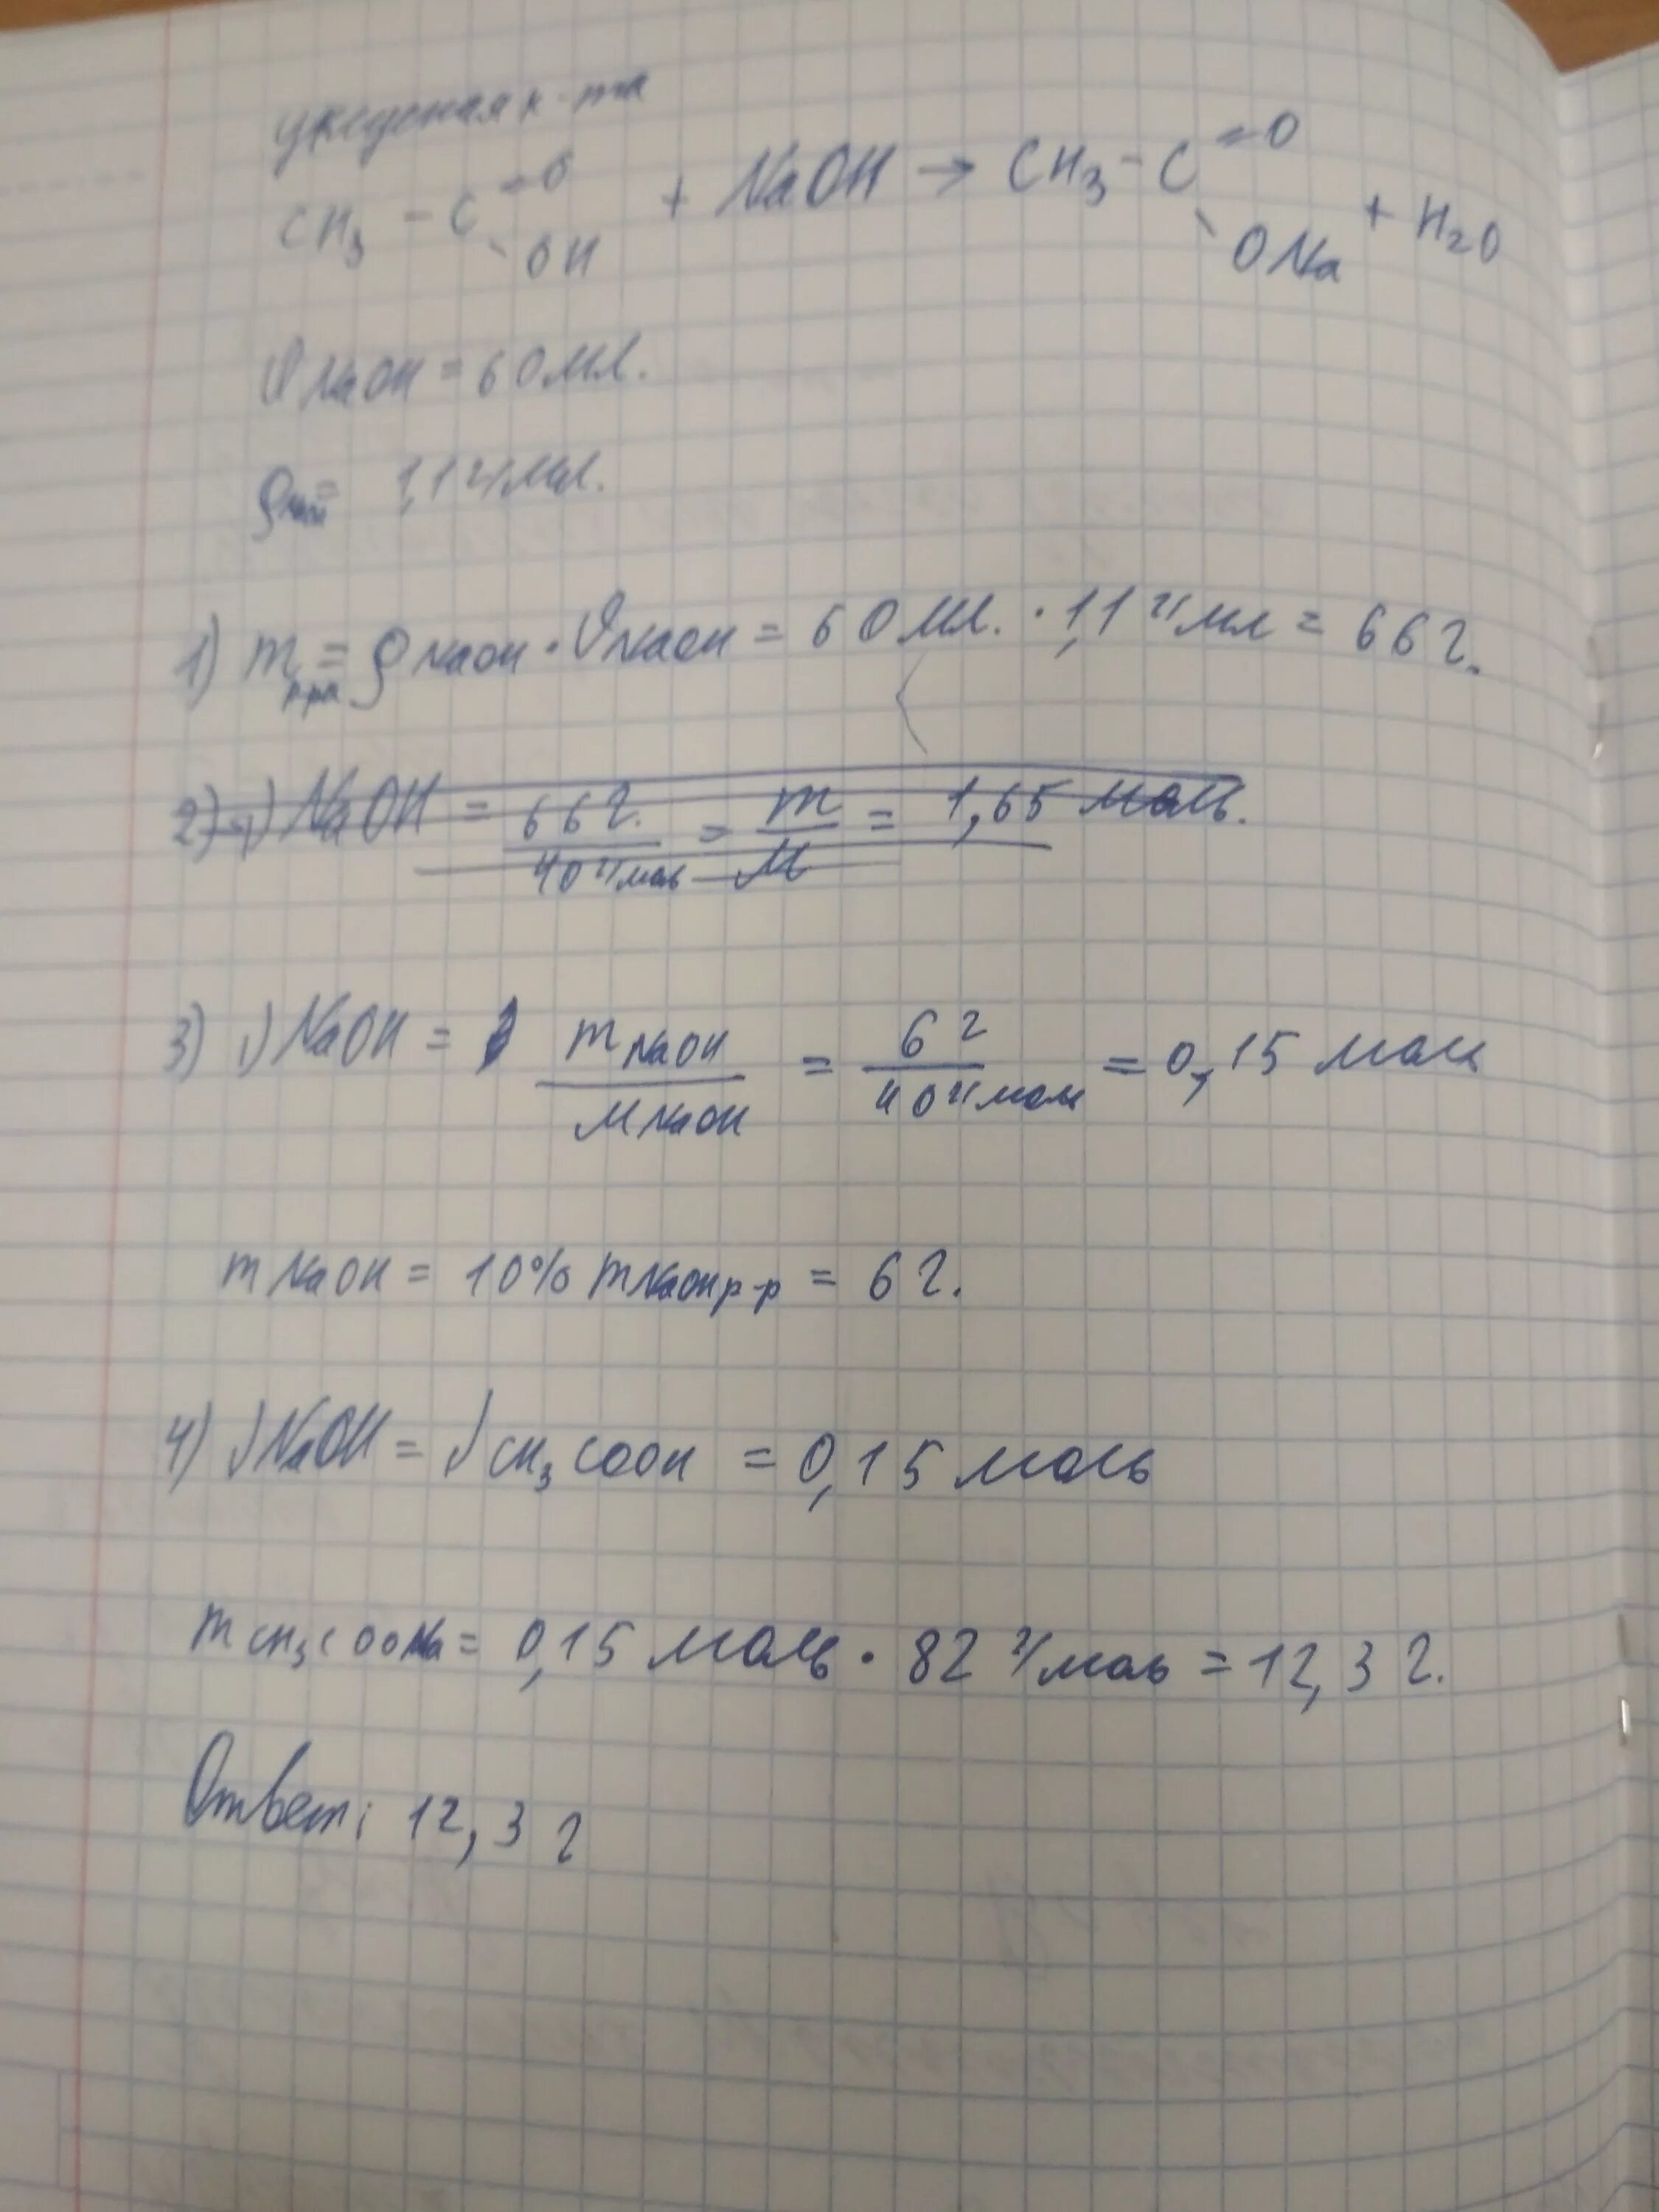 уксусная к-та
CH3 - C =O - OH + NaOH → CH3 - C =O - ONa + H2O
V NaOH = 60 мл.
ρ NaOH = 1,1 г/мл.
1) m р-ра = ρ NaOH · V NaOH = 60 мл. · 1,1 г/мл = 66 г.
2) ν NaOH = 66 г. / 40 г/моль = m / M = 1,65 моль.
3) ν NaOH = m NaOH / M NaOH = 6 г / 40 г/моль = 0,15 моль
m NaOH = 10% m NaOH р-р = 6 г.
4) ν NaOH = ν CH3COOH = 0,15 моль
m CH3COONa = 0,15 моль · 82 г/моль = 12,3 г.
Ответ: 12,3 г